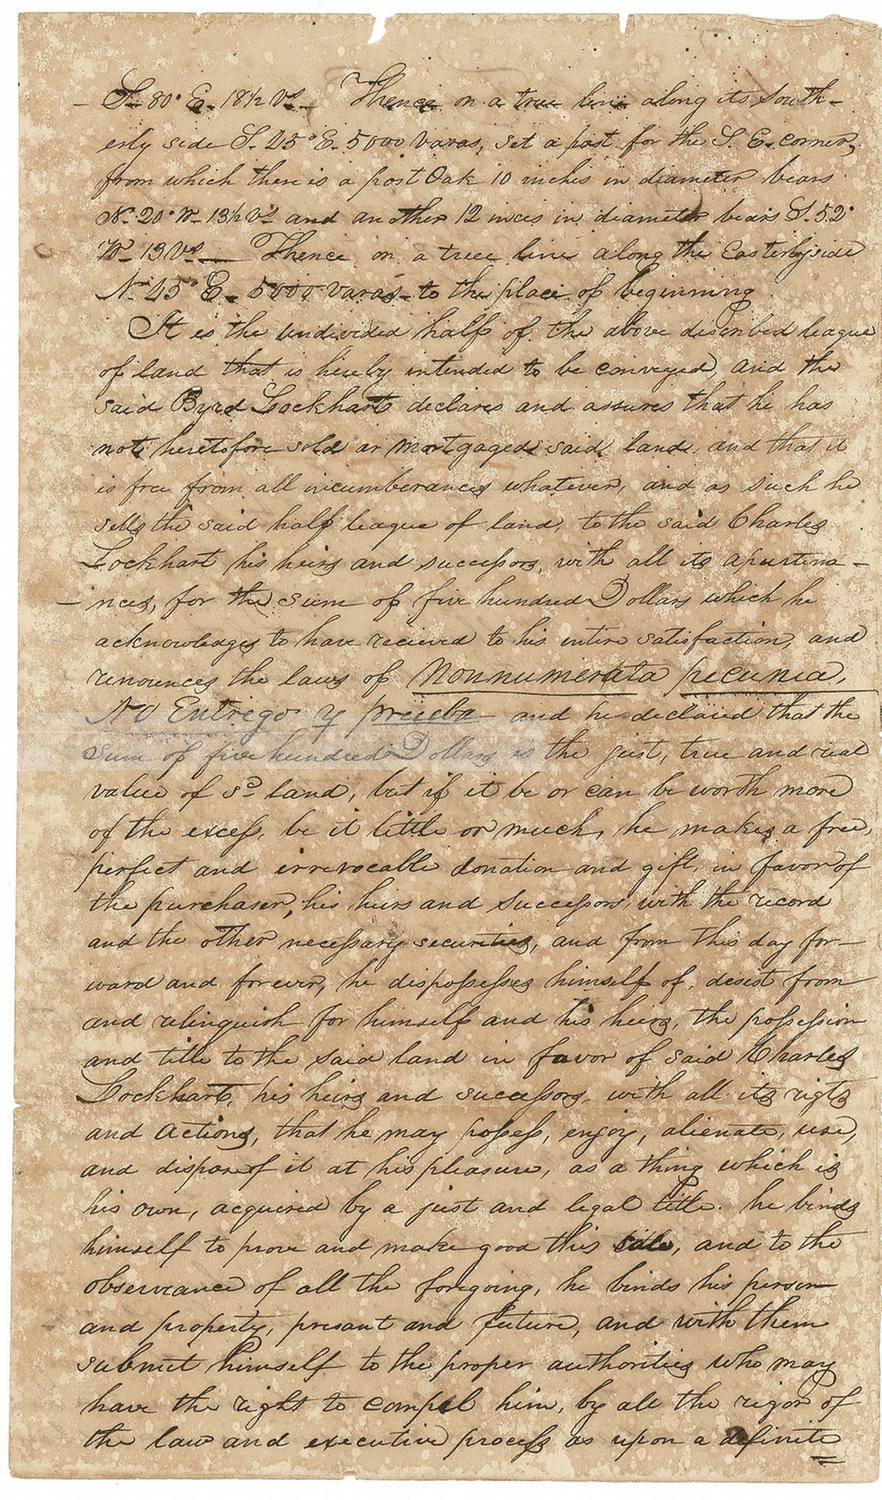 – S. 80° E. 18½ Vs. – Thence on a true line along its South-
erly side S. 45° E. 5000 varas, set a post for the S. E. corner,
from which there is a post Oak 10 inches in diameter bears
N. 20° W. 13½ Vs and another 12 inces in diameter bears S. 52°
W. 13 Vs. — Thence on a true line along the Easterly side
N. 45° E. 5000 varas to the place of beginning.
It is the undivided half of the above discribed league
of land that is hereby intended to be conveyed, and the
said Byrd Lockhart declares and assures that he has
not heretofore sold or mortgaged said land, and that it
is free from all incumberances whatever, and as such he
sells the said half league of land, to the said Charles
Lockhart his heirs and successors, with all its apurtena-
-nces, for the sum of five hundred Dollars which he
acknowledges to have recieved to his entire satisfaction, and
renounces the laws of Nonnumerata pecunia,
No Entrego y prueba and he declared that the
sum of five hundred Dollars is the just, true and real
value of sd land, but if it be or can be worth more
of the excess, be it little or much, he makes a free,
perfect and irrevocable donation and gift, in favor of
the purchaser, his heirs and successors, with the record
and the other necessary securities, and from this day for-
ward and forever, he dispossesses himself of, desist from
and relinquish for himself and his heirs, the possession
and title to the said land in favor of said Charles
Lockhart, his heirs and successors, with all its rigts
and actions, that he may possess, enjoy, alienate, use,
and dispose of it at his pleasure, as a thing which is
his own, acquired by a just and legal title. he binds
himself to prove and make good this sale, and to the
observance of all the foregoing, he binds his person
and property, present and future, and with them
submit himself to the proper authorities who may
have the right to compel him, by all the rigor of
the law and executive process as upon a definite